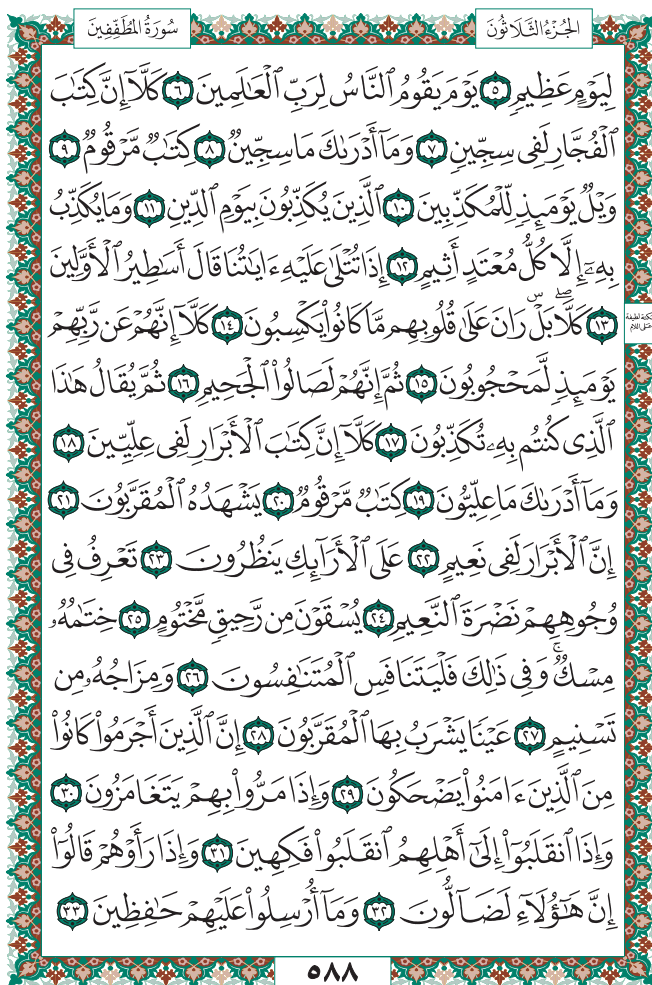 سُورَةُ المُطَفِّفِينَ
الجُزْءُ الثَّلَاثُونَ
لِيَوْمٍ عَظِيمٖ ٥ يَوْمَ يَقُومُ ٱلنَّاسُ لِرَبِّ ٱلْعَٰلَمِينَ ٦ كَلَّآ إِنَّ كِتَٰبَ
ٱلْفُجَّارِ لَفِى سِجِّينٖ ٧ وَمَآ أَدْرَىٰكَ مَا سِجِّينٞ ٨ كِتَٰبٞ مَّرْقُومٞ ٩
وَيْلٞ يَوْمَئِذٖ لِّلْمُكَذِّبِينَ ١٠ ٱلَّذِينَ يُكَذِّبُونَ بِيَوْمِ ٱلدِّينِ ١١ وَمَا يُكَذِّبُ
بِهِۦٓ إِلَّا كُلُّ مُعْتَدٍ أَثِيمٍ ١٢ إِذَا تُتْلَىٰ عَلَيْهِ ءَايَٰتُنَا قَالَ أَسَٰطِيرُ ٱلْأَوَّلِينَ
١٣ كَلَّاۖ بَلْۜ رَانَ عَلَىٰ قُلُوبِهِم مَّا كَانُوا۟ يَكْسِبُونَ ١٤ كَلَّآ إِنَّهُمْ عَن رَّبِّهِمْ
يَوْمَئِذٖ لَّمَحْجُوبُونَ ١٥ ثُمَّ إِنَّهُمْ لَصَالُوا۟ ٱلْجَحِيمِ ١٦ ثُمَّ يُقَالُ هَٰذَا
ٱلَّذِى كُنتُم بِهِۦ تُكَذِّبُونَ ١٧ كَلَّآ إِنَّ كِتَٰبَ ٱلْأَبْرَارِ لَفِى عِلِّيِّينَ ١٨
وَمَآ أَدْرَىٰكَ مَا عِلِّيُّونَ ١٩ كِتَٰبٞ مَّرْقُومٞ ٢٠ يَشْهَدُهُ ٱلْمُقَرَّبُونَ ٢١
إِنَّ ٱلْأَبْرَارَ لَفِى نَعِيمٍ ٢٢ عَلَى ٱلْأَرَآئِكِ يَنظُرُونَ ٢٣ تَعْرِفُ فِى
وُجُوهِهِمْ نَضْرَةَ ٱلنَّعِيمِ ٢٤ يُسْقَوْنَ مِن رَّحِيقٖ مَّخْتُومٍ ٢٥ خِتَٰمُهُۥ
مِسْكٞۚ وَفِى ذَٰلِكَ فَلْيَتَنَافَسِ ٱلْمُتَنَٰفِسُونَ ٢٦ وَمِزَاجُهُۥ مِن
تَسْنِيمٍ ٢٧ عَيْنٗا يَشْرَبُ بِهَا ٱلْمُقَرَّبُونَ ٢٨ إِنَّ ٱلَّذِينَ أَجْرَمُوا۟ كَانُوا۟
مِنَ ٱلَّذِينَ ءَامَنُوا۟ يَضْحَكُونَ ٢٩ وَإِذَا مَرُّوا۟ بِهِمْ يَتَغَامَزُونَ ٣٠
وَإِذَا ٱنقَلَبُوٓا۟ إِلَىٰٓ أَهْلِهِمُ ٱنقَلَبُوا۟ فَكِهِينَ ٣١ وَإِذَا رَأَوْهُمْ قَالُوٓا۟
إِنَّ هَٰٓؤُلَآءِ لَضَآلُّونَ ٣٢ وَمَآ أُرْسِلُوا۟ عَلَيْهِمْ حَٰفِظِينَ ٣٣
٥٨٨